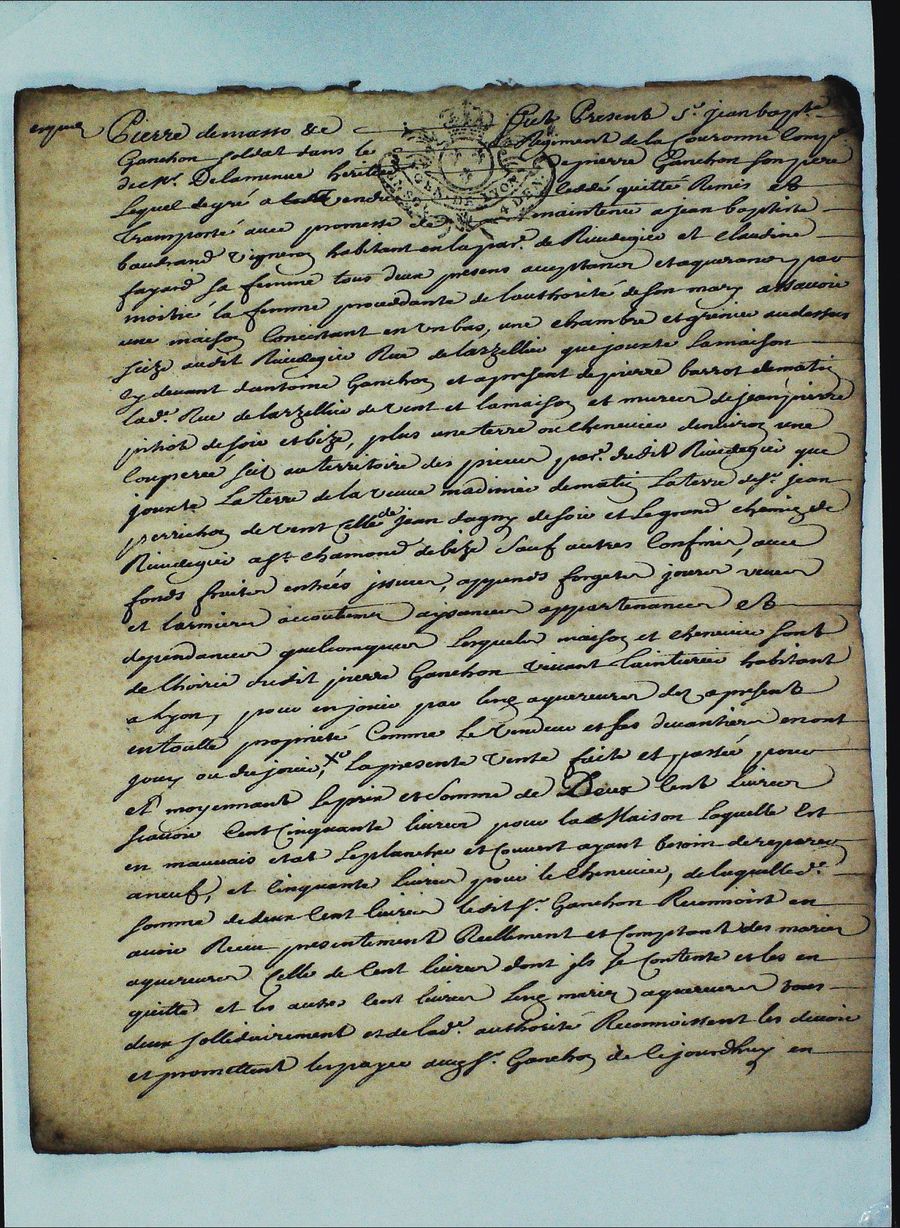 Pierre demasso &c Fut Present Sr. jean bapte.
Ganchon soldat dans le Regiment de la Couronne Compe.
de Mr. Delamenue herit de pierre Ganchon son pere
Lequel de gré a vendu ceddé quitté Remis et
Transporté avec promesse de maintenir a jean baptiste
baudrand vigneron habitant en la par. de Rivedegier et Claudine
fayard sa femme tous deux presens acceptans et aquerans par
moitié la femme procedante de lauthorité de son mary assavoir
une maison Concistant en un bas, une chambre et grenier audessus
size audit Rivedegier Rue de larzellier que jouxte la maison
cy devant dantoine Ganchon et apresent de pierre barrot de matin
lade. Rue de larzellier de vent et la maison et murer de jean pierre
pitiot de soir et bize, plus une terre ou chenevier denviron une
Couperee scit au territoire des pieur par. dudit Rivedegier que
jouxte La terre de la veuve madinier de matin La terre de Sr. jean
perrichon de vent Celle de jean dagny de soir et Le grand chemin de
Rivedegier a St. chamond de bize sauf autres Confins, avec
fonds fruits entrées issues, appends forgets jours vues
et larmiers accoutumes aysances appartenances et
dependances quelcomques Lesquels maison et chenevier sont
de lhoirie dudit pierre Ganchon vivant Tainturier habitant
a Lyon, pour en jouir par les aquereurs dez apresent
en toutte proprieté Comme Le Vendeur et ses devantiers en ont
jouy ou du jouir, La presente vente faite et passée pour
et moyennant Le prix et Somme de Deux Cent Livres
scavoir Cent Cinquante livres pour la Maison Laquelle est
en mauvais etat Le planche et Couvert ayant besoin de reparer
aneuf, et Cinquante livres pour le Chenevier, de laquelle de.
somme de deux Cent livres ledit Sr. Ganchon Reconnoit en
avoir Receu presentement Reellement et Comptant des maries
aquereurs Celle de Cent livres dont jls Se Contente et les en
quitte et les autres Cent livres Les maries aquereurs tous
deux sollidairement et de lade. authorité Reconnoissent les devoir
et promettent les payer audit Sr. Ganchon de Cejourdhuy en